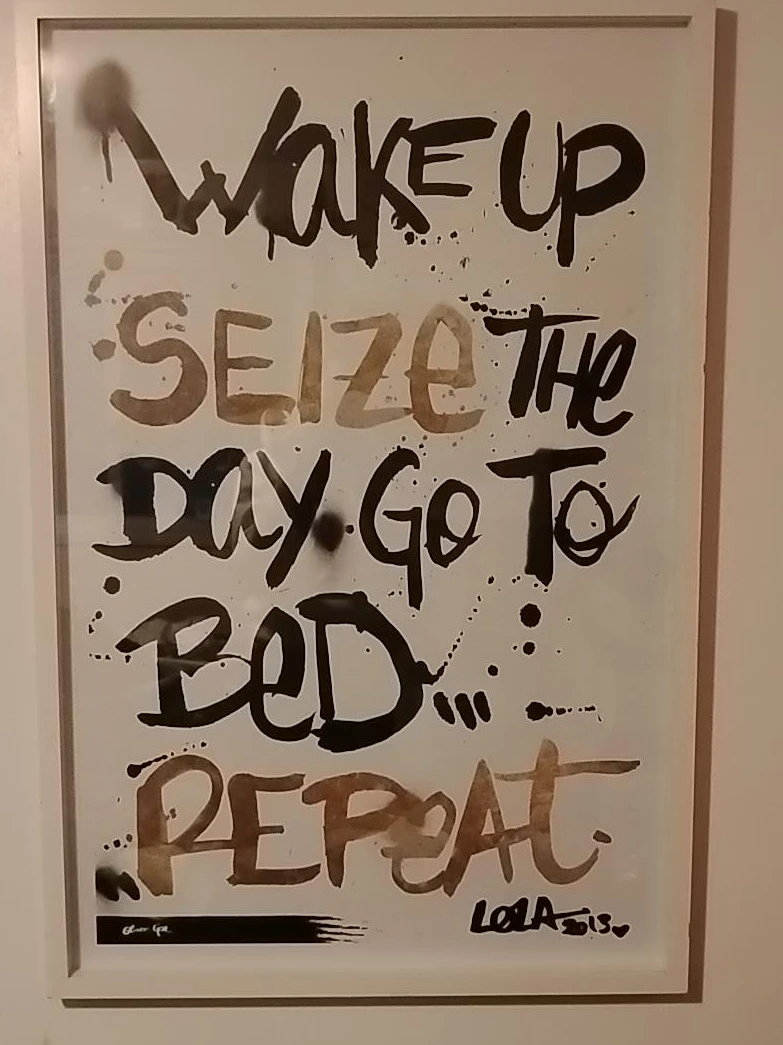 WAKE UP
SEIZE THE
DAY GO TO
BED...
REPEAT.
LOLA 2013
Oliver Gal